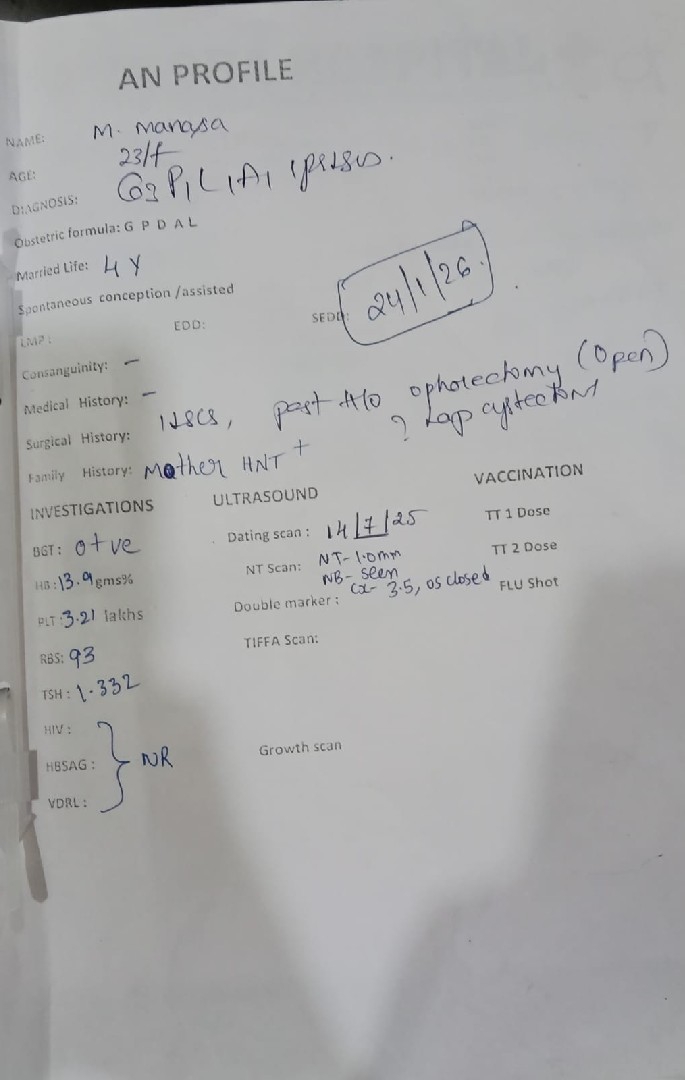 AN PROFILE
NAME: M. Manasa
AGE: 23/f
DIAGNOSIS: G3 P1 L1 A1
Obstetric formula: G P D A L
Married Life: 4 Y
Spontaneous conception /assisted
LMP: EDD: SEDD: 24/1/26
Consanguinity: –
Medical History: –
Surgical History: 1LSCS, past H/O ophorectomy (Open)
? Lap cystectomy
Family History: Mother HNT +
INVESTIGATIONS ULTRASOUND VACCINATION
BGT: O+ve Dating scan: 14/7/25 TT 1 Dose
HB: 13.9 gms% NT Scan: NT- 1.0mm TT 2 Dose
NB- seen
PLT: 3.21 lakhs Double marker: Cx- 3.5, os closed FLU Shot
RBS: 93 TIFFA Scan:
TSH: 1.332
HIV:
HBSAG: } NR Growth scan
VDRL: